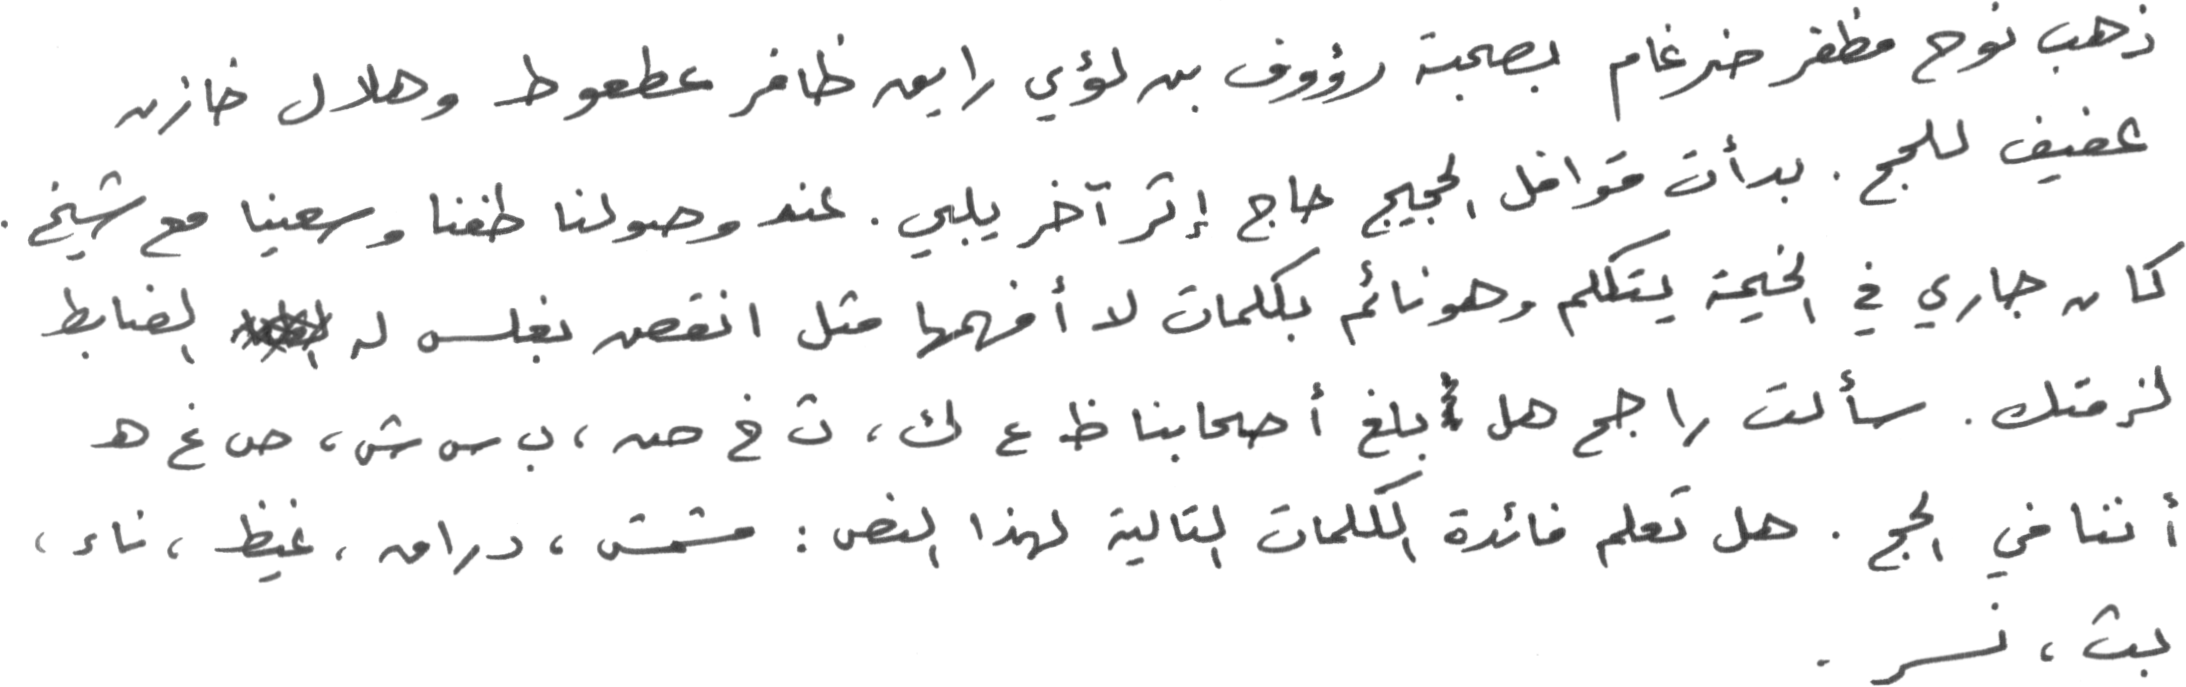 ذهب نوح مظفر ضرغام بصحبة رؤوف بن لؤي رايق ظافر عطعوط وهلال خازن
عفيف للحج. بدأت قوافل الحجيج حاج إثر آخر يلبي. عند وصولنا طفنا وسعينا مع شيخ.
كان جاري في الخيمة يتكلم وهو نائم بكلمات لا أفهمها مثل انقص بغلس له الضابط
لزمتك. سألت راجح هل بلغ أصحابنا ظ ع ك، ث خ ص، ب س ش، ض غ هـ
أننا في الحج. هل تعلم فائدة الكلمات التالية لهذا النص: مشمش، دراق، غيظ، ناء،
بث، نسر.